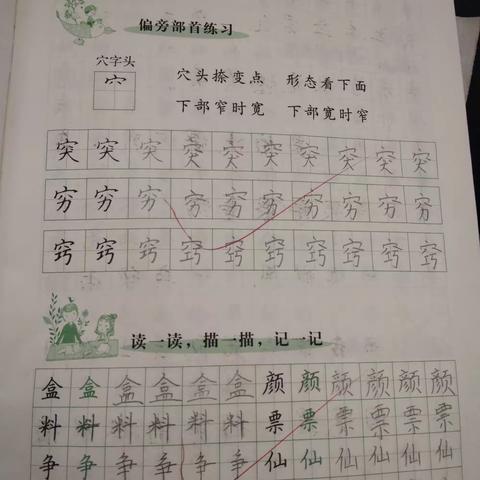 偏旁部首练习
穴字头
穴
穴头捺变点 形态看下面
下部窄时宽 下部宽时窄
突突突突突突突突突突
穷穷穷穷穷穷穷穷穷穷
窍窍窍窍窍窍窍窍窍窍
读一读，描一描，记一记
盒盒盒盒盒盒颜颜颜颜颜颜
料料料料料料票票票票票票
争争争争争争仙仙仙仙仙仙